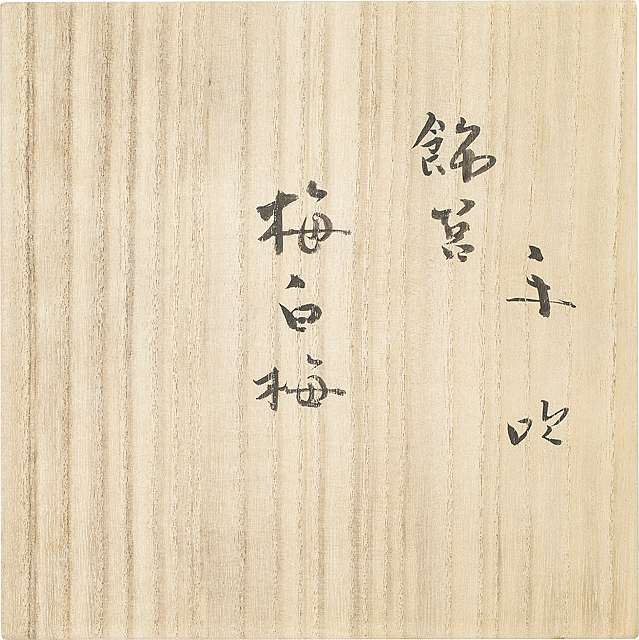 手吹
飾筥
梅白梅